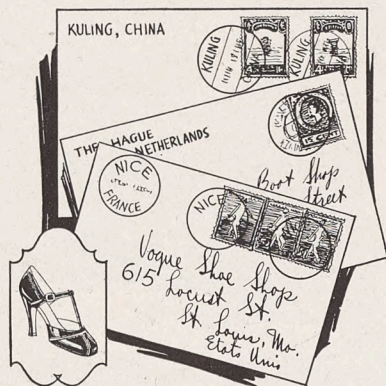 KULING, CHINA
KULING
KULING
THE HAGUE
NETHERLANDS
15 CENT
Boot Shop
Street
NICE
FRANCE
NICE
Vogue Shoe Shop
615 Locust St.
St Louis, Mo.
Etats Unis